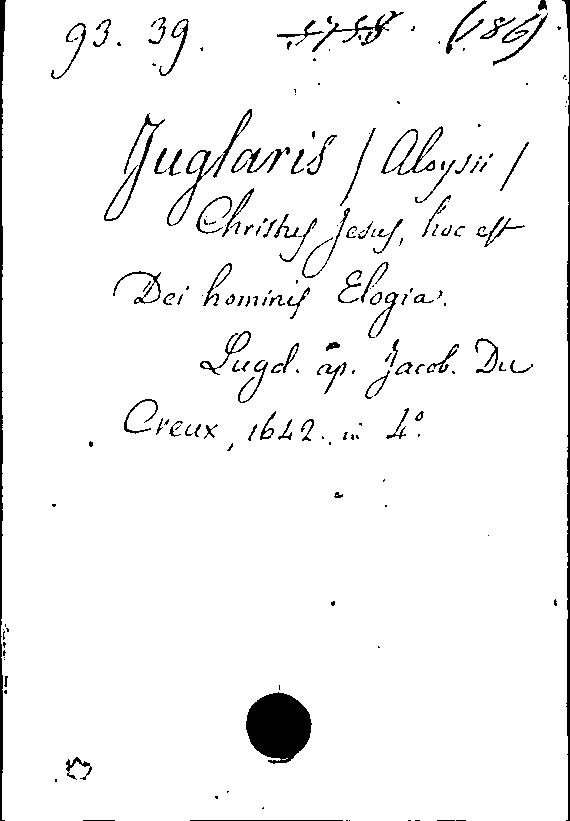 93. 39. 5758. (186).
Juglaris / Aloysii /
Christus Jesus, hoc est
Dei hominis Elogia.
Lugd. ap. Jacob. Du
Creux, 1642. in 4°.